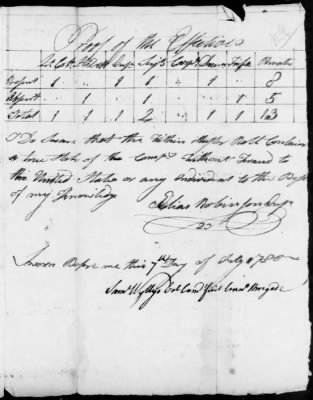 Proof of the Effectives
Capt Ens Serjts Corpls Drum Fife Privates
Present 1 1 1 1 1 8
Absent 1 1 1 1 5
Total 1 1 1 1 2 1 1 13
I Do Swear that the Within Muster Roll Contains
a true State of the Compy Without Fraud to
the United States or any Individual to the Best
of my Knowledge
Elias Robinson
Sworn Before me this 7th Day of July 1780
Saml Wyllys Col Comd first Conn Brigade